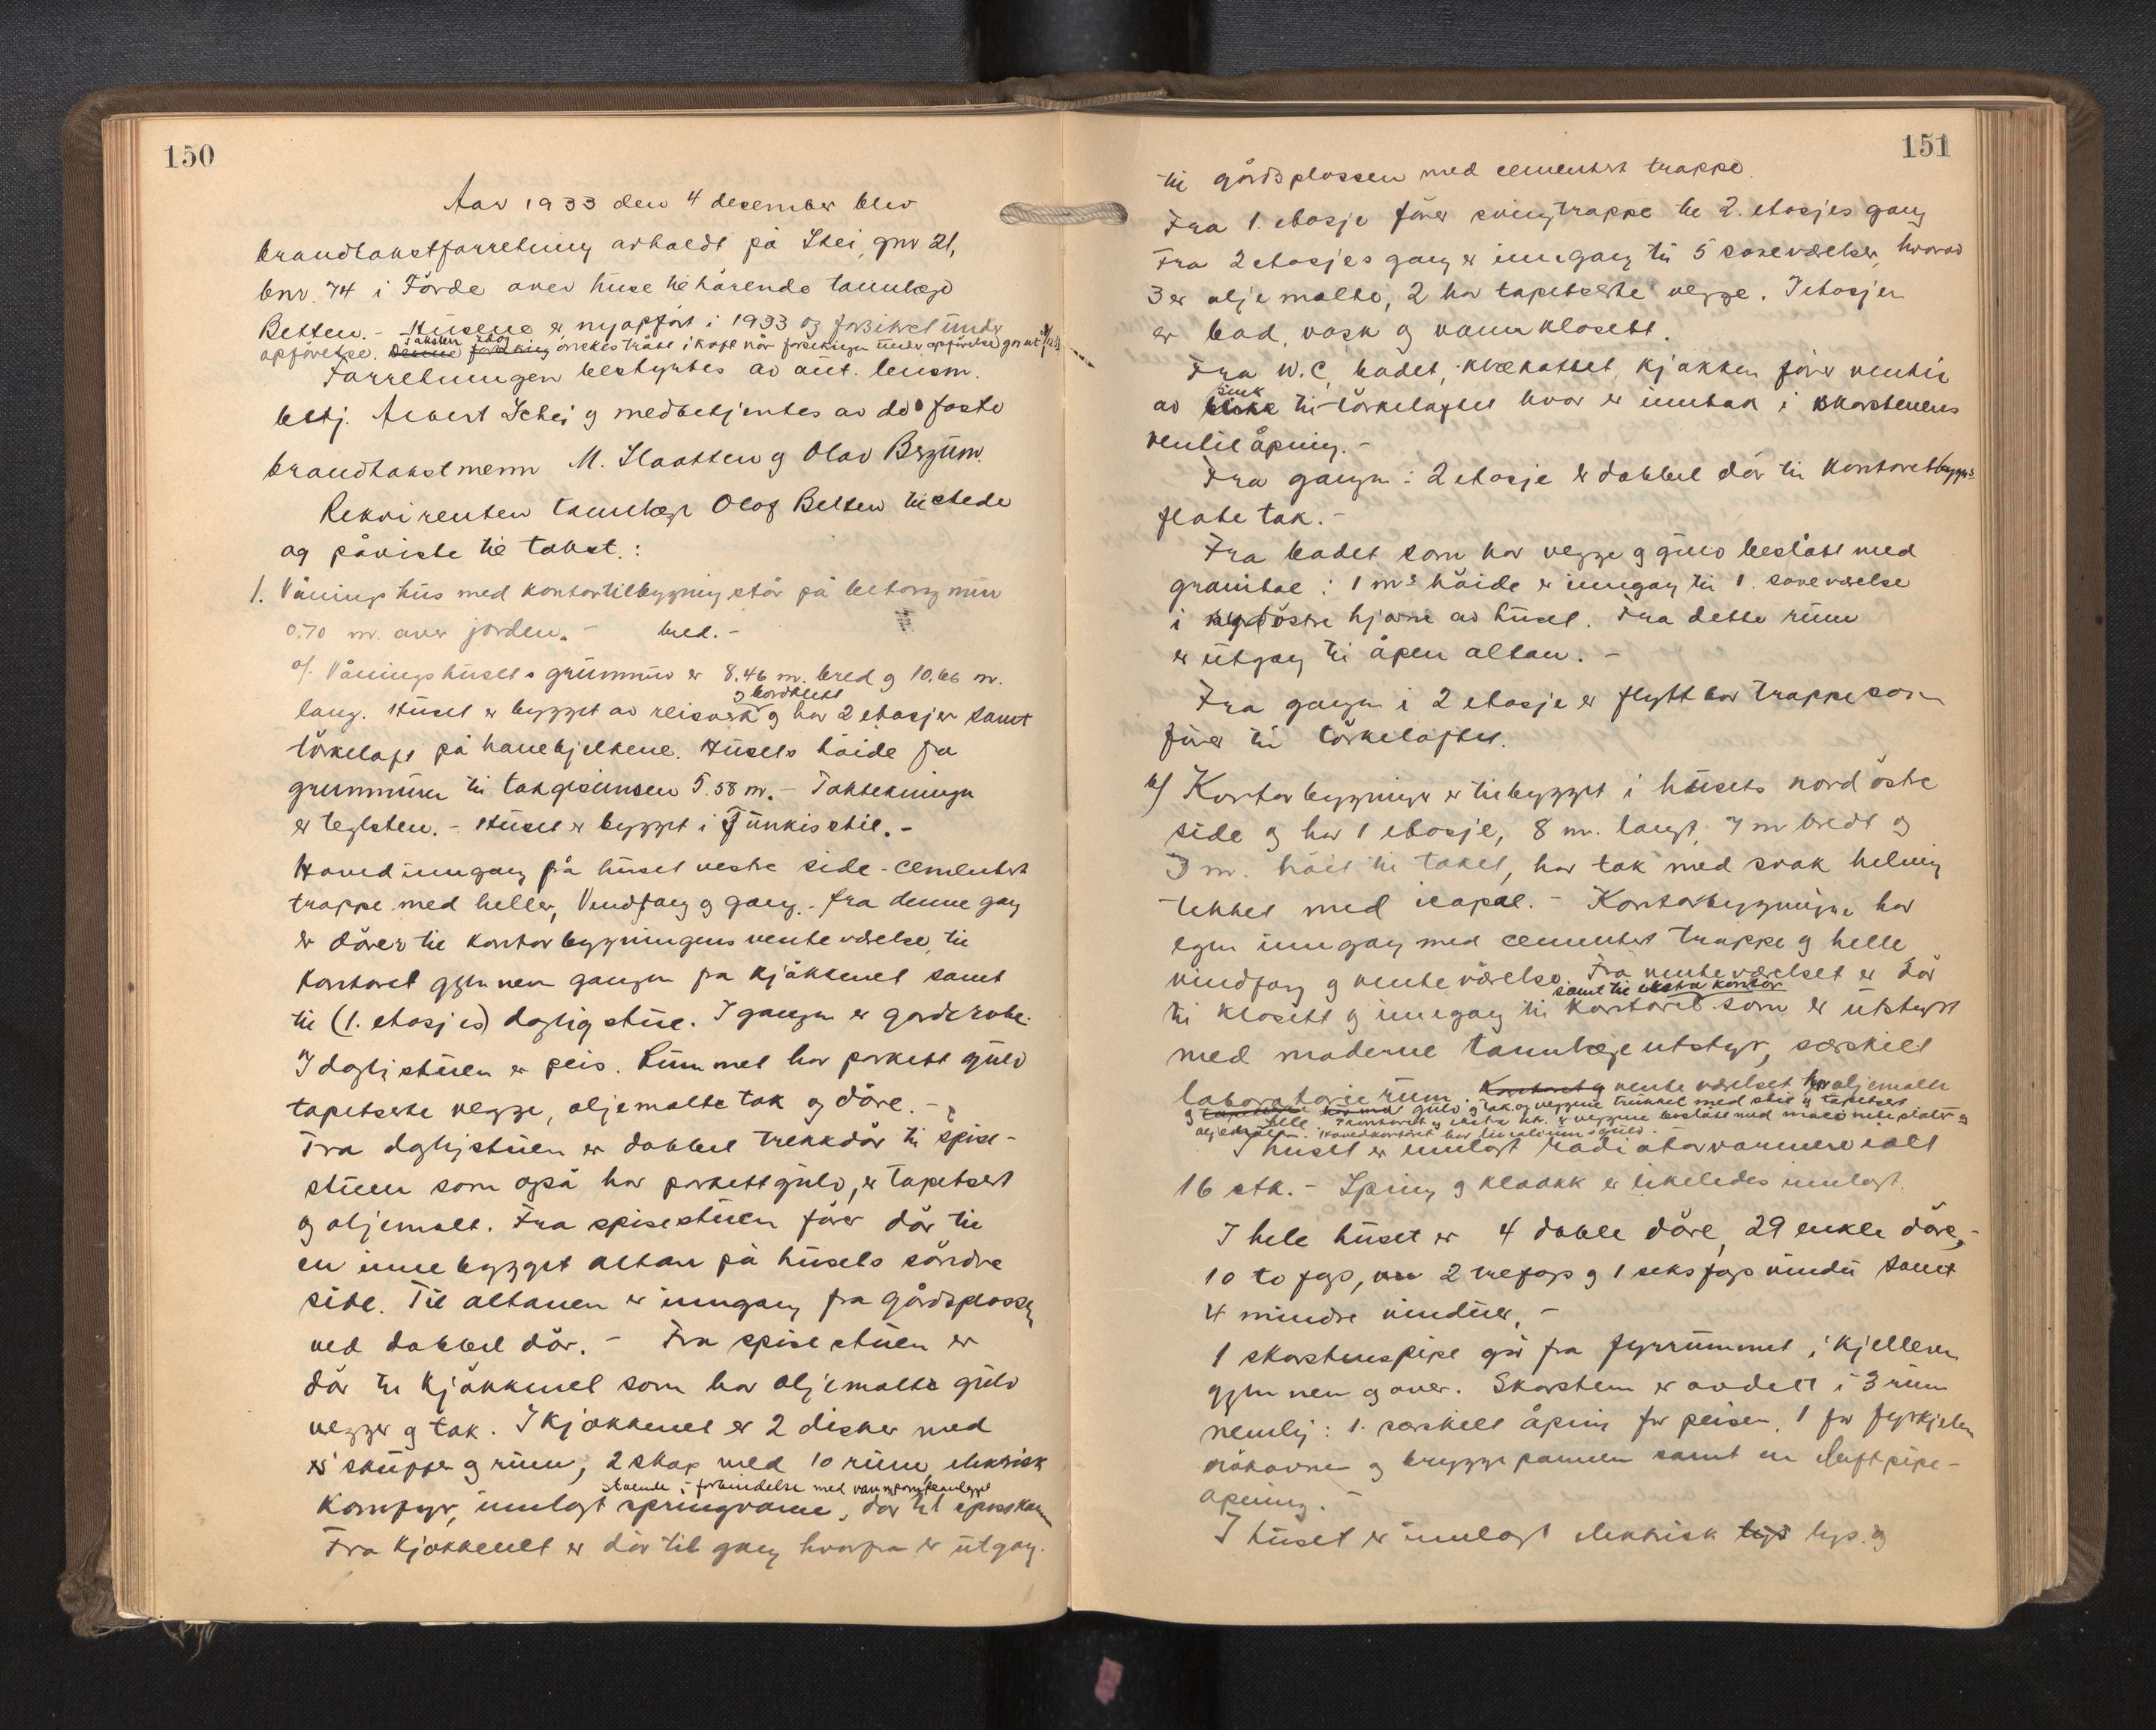 150
Aar 1933 den 4 desember blev
brandtakstforretning avholdt på Stei, gnr 21,
bnr. 74 i Førde over huse tilhørende tannlæge
Betten. - Husene er nyopført i 1933 og forsikret under
opførelse. Taksten ønskes trådt i kraft når forsikringen under opførelse går ut
Forretningen bestyrtes av aut. lensm.
betj. Albert Schei og medbetjentes av de faste
brandtakstmenn M. Slaatten og Olav Bergum.
Rekvirenten tannlæge Olof Betten tilstede
og påviste til takst. :
1. Våningshus med kontortilbygning står på betong mur
0.70 m. over jorden. - bred. -
a/. Våningshusets grunnmur er 8.46 m. bred og 10.66 m.
lang. Huset er bygget av reisverk og bordklædt og har 2 etasjer samt
tørkeloft på hanebjelkene. Husets høide fra
grunnmuren til takgesimsen 5.58 m. - Taktekningen
er teglsten. - Huset er bygget i Funkisstil. -
Hovedinngang på huset vestre side - cementert
trappe med heller, Vindfang og gang. - fra denne gang
er dører til kontorbygningens venteværelse, til
kontoret gjennem gangen fra kjøkkenet samt
til (1. etasjes) daglig stue. I gangen er garderobe.
I daglistuen er peis. Rummet har parkett gulv
tapetserte vegge, oljemalte tak og døre. -
Fra daglistuen er dobbel trekkdør til spise-
stuen som også har parkettgulv, er tapetsert
og oljemalt. Fra spisestuen fører dør til
en innebygget altan på husets søndre
side. Til altanen er inngang fra gårdsplassen
ved dobbel dør. - Fra spisestuen er
dør til kjøkkenet som har oljemalte gulv
vegger og tak. I kjøkkenet er 2 disker med
skuffer og rum, 2 skap med 10 rum, elektrisk
komfyr, innlagt springvann, stående i forbindelse med varmtvannsanlegget dør til spisskammer
Fra kjøkkenet er dør til gang hvorfra er utgang
151
til gårdsplassen med cementert trappe.
Fra 1. etasje fører svingtrappe til 2. etasjes gang
Fra 2 etasjes gang er inngang til 5 soveværelser, hvorav
3 er oljemalte, 2 har tapetserte vegge. I etasjen
er bad, vask og vannklosett.
Fra W.C, badet, kjøkken fører ventil
av sink til tørkeloftet hvor er inntak i skorstenens
ventilåpning. -
Fra gangen i 2 etasje er dobbel dør til kontoretbyggs
flate tak. -
Fra badet som har vegge og gulv beslått med
i 1 m's høide er inngang til 1. soveværelse
i østre hjørne av huset. Fra dette rum
er utgang til åpen altan. -
Fra gangen i 2 etasje er flyttbar trappe som
fører til tørkeloftet.
b/ Kontorbygningen er tilbygget i husets nordøstre
side og har 1 etasje, 8 m. langt, 7 m bredt og
3 m. høit til taket, har tak med svak helning
tekket med icopal. - Kontorbygningen har
egen inngang med cementert trappe og helle
vindfang og venteværelse. Fra venteværelset er dør
til klosett og inngang til kontoret samt til ekstra kontor som er utstyrt
med moderne tannlægeutstyr, særskilt
laboratorierum. Kontoret og venteværelset har oljemalte
gulv og tak og veggene trukket med strie og tapetsert
I kontoret og ekstra ktr. er veggene beslått med plater og
oljemalte. Hovedkontoret har linoleumsgulv. -
I huset er innlagt radiatorvarmere ialt
16 stk. - Spring og kloakk er likeledes innlagt.
I hele huset er 4 doble døre, 29 enkle døre, -
10 to fags, 2 trefags og 1 seksfags vindu samt
4 mindre vinduer. -
1 skorstenspipe går fra fyrrummet i kjelleren
gjennem og over. Skorsten er avdelt i 3 rum
nemlig: 1. særskilt åpning for peisen, 1 for fyrkjelen
og bryggepannen samt en luftpipe-
åpning. -
I huset er innlagt elektrisk lys lys. og